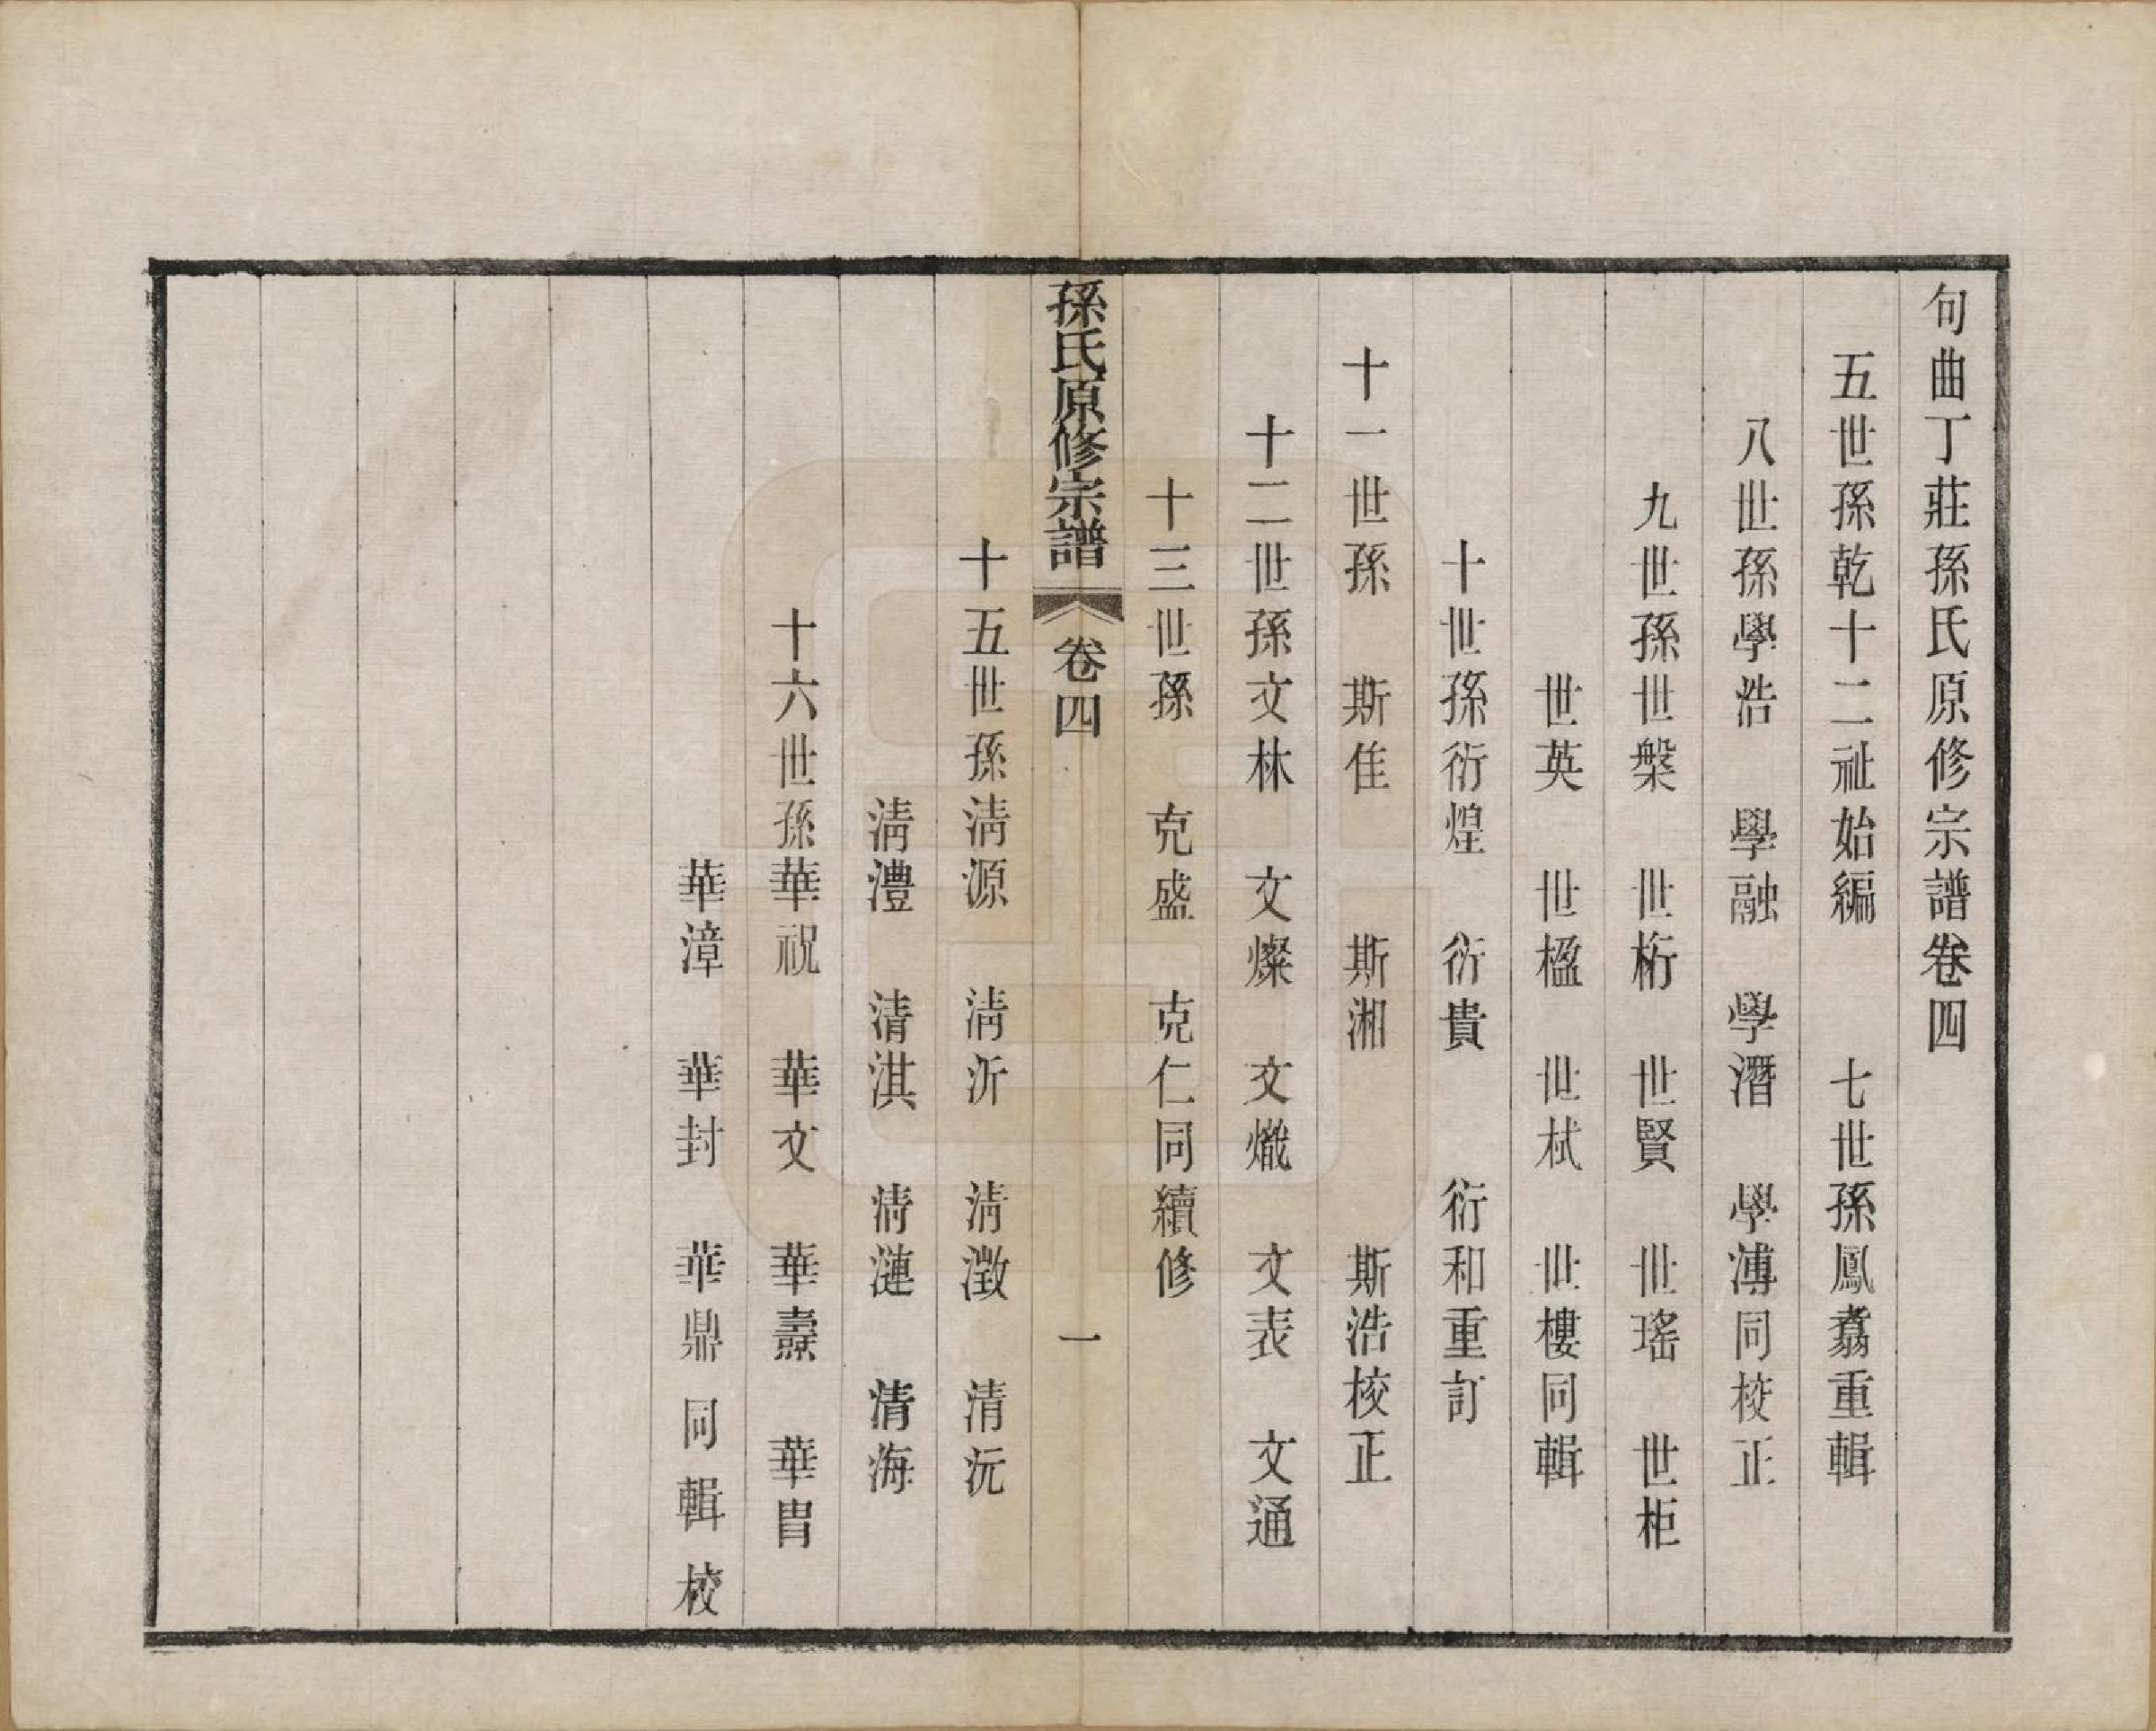 句曲丁莊孫氏原修宗譜卷四
五世孫乾十二祉始編　七世孫鳳翥重輯
八世孫學浩　學融　學潛　學溥同校正
九世孫世槃　世桁　世賢　世瑤　世柜
世英　世楹　世栻　世樓同輯
十世孫衍煌　衍貴　衍和重訂
十一世孫　斯佳　斯湘　斯浩校正
十二世孫文林　文燦　文熾　文表　文通
十三世孫　克盛　克仁同續修
孫氏原修宗譜　卷四　一
十五世孫淸源　淸沂　淸澂　清沅
淸灃　清淇　淸漣　清海
十六世孫華祝　華文　華燾　華胄
華漳　華封　華鼎同輯校